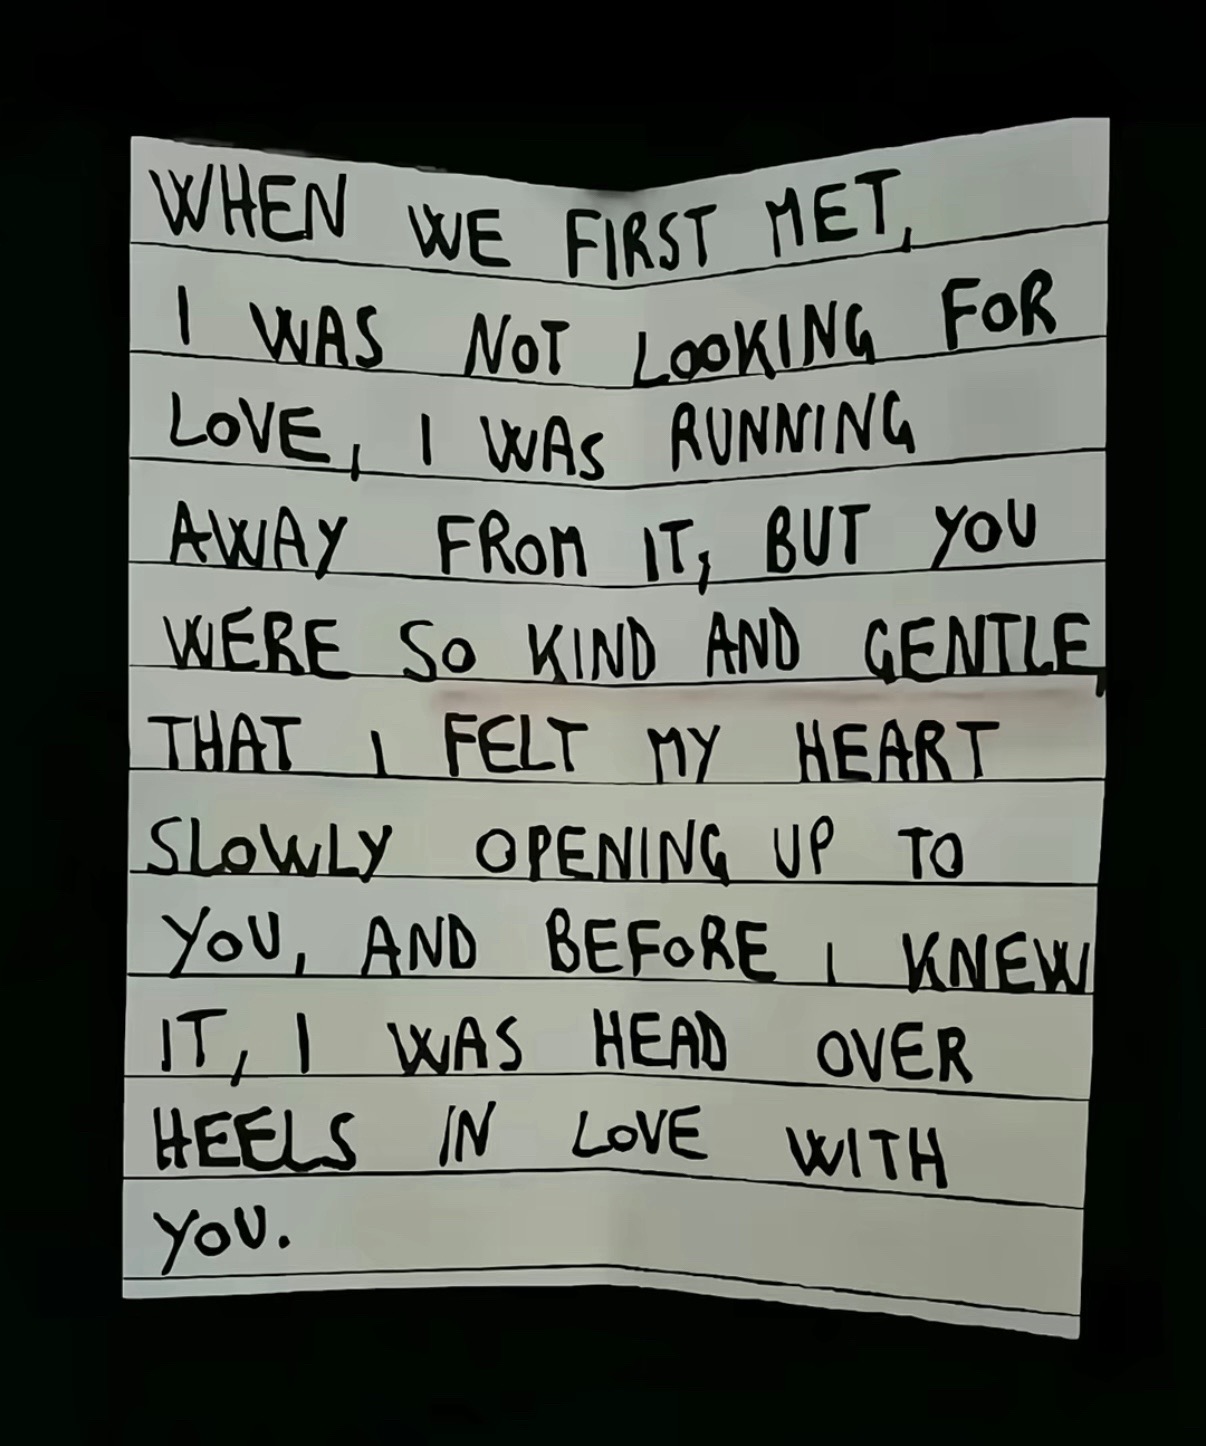 WHEN WE FIRST MET,
I WAS NOT LOOKING FOR
LOVE, I WAS RUNNING
AWAY FROM IT, BUT YOU
WERE SO KIND AND GENTLE,
THAT I FELT MY HEART
SLOWLY OPENING UP TO
YOU, AND BEFORE I KNEW
IT, I WAS HEAD OVER
HEELS IN LOVE WITH
YOU.